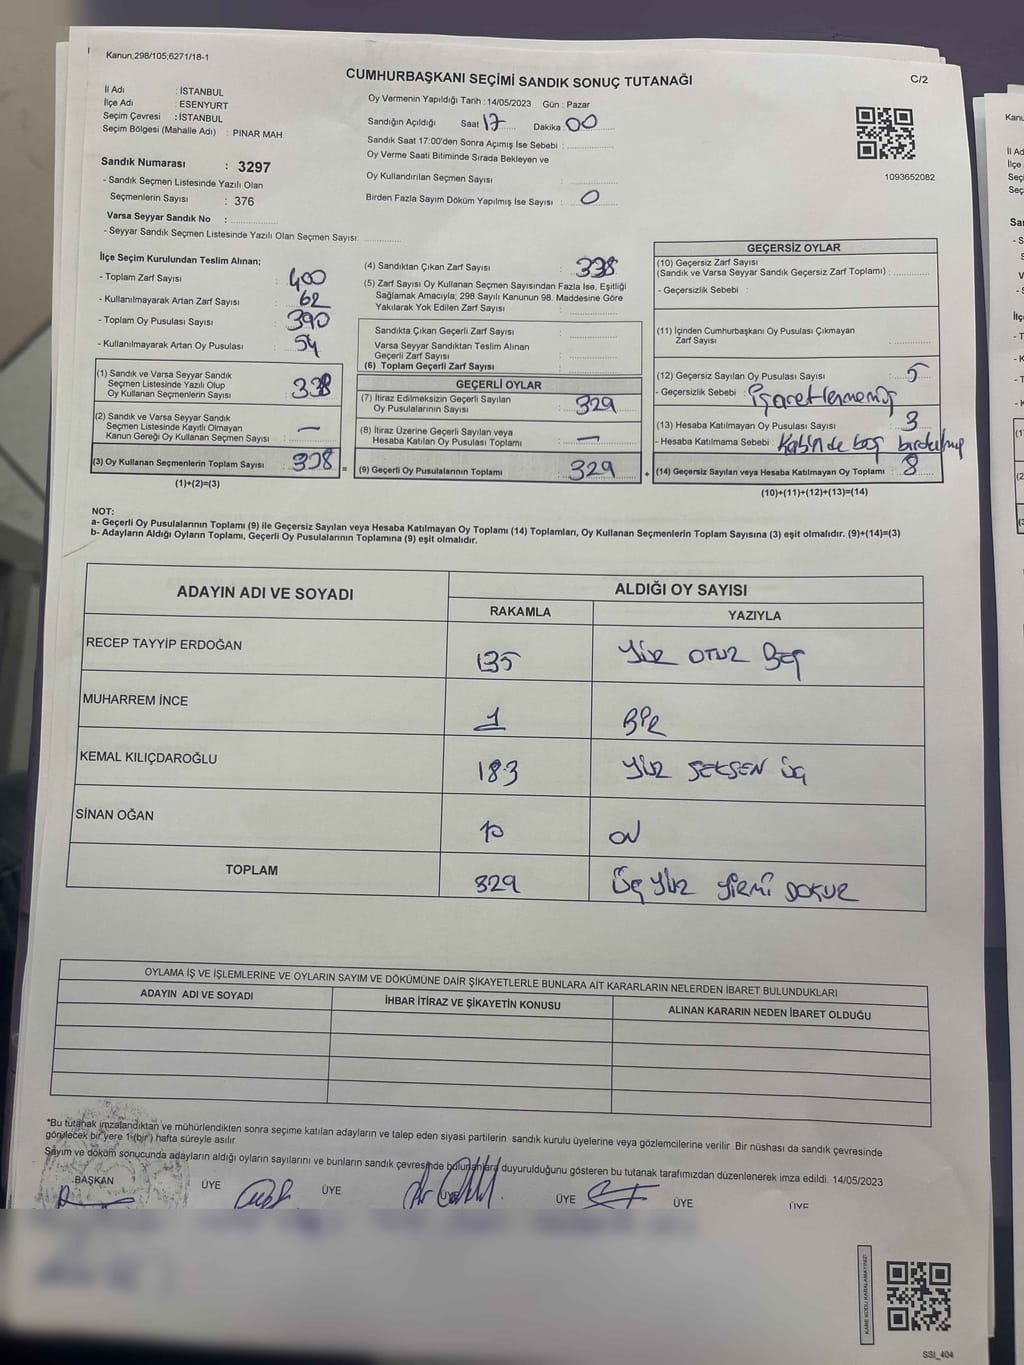 Kanun;298/105;6271/18-1
CUMHURBAŞKANI SEÇİMİ SANDIK SONUÇ TUTANAĞI
C/2
İl Adı : İSTANBUL
İlçe Adı : ESENYURT
Seçim Çevresi : İSTANBUL
Seçim Bölgesi (Mahalle Adı) : PINAR MAH
Sandık Numarası : 3297
- Sandık Seçmen Listesinde Yazılı Olan
Seçmenlerin Sayısı : 376
Varsa Seyyar Sandık No :
- Seyyar Sandık Seçmen Listesinde Yazılı Olan Seçmen Sayısı:
Oy Vermenin Yapıldığı Tarih : 14/05/2023 Gün : Pazar
Sandığın Açıldığı Saat 17 Dakika 00
Sandık Saat 17:00'den Sonra Açımış İse Sebebi :
Oy Verme Saati Bitiminde Sırada Bekleyen ve
Oy Kullandırılan Seçmen Sayısı :
Birden Fazla Sayım Döküm Yapılmış İse Sayısı : 0
1093652082
İlçe Seçim Kurulundan Teslim Alınan;
- Toplam Zarf Sayısı : 400
- Kullanılmayarak Artan Zarf Sayısı : 62
- Toplam Oy Pusulası Sayısı : 390
- Kullanılmayarak Artan Oy Pusulası : 54
(1) Sandık ve Varsa Seyyar Sandık
Seçmen Listesinde Yazılı Olup
Oy Kullanan Seçmenlerin Sayısı : 338
(2) Sandık ve Varsa Seyyar Sandık
Seçmen Listesinde Kayıtlı Olmayan
Kanun Gereği Oy Kullanan Seçmen Sayısı : —
(3) Oy Kullanan Seçmenlerin Toplam Sayısı : 338
(1)+(2)=(3)
(4) Sandıktan Çıkan Zarf Sayısı : 338
(5) Zarf Sayısı Oy Kullanan Seçmen Sayısından Fazla İse, Eşitliği
Sağlamak Amacıyla; 298 Sayılı Kanunun 98. Maddesine Göre
Yakılarak Yok Edilen Zarf Sayısı :
Sandıkta Çıkan Geçerli Zarf Sayısı :
Varsa Seyyar Sandıktan Teslim Alınan
Geçerli Zarf Sayısı :
(6) Toplam Geçerli Zarf Sayısı :
GEÇERLİ OYLAR
(7) İtiraz Edilmeksizin Geçerli Sayılan
Oy Pusulalarının Sayısı : 329
(8) İtiraz Üzerine Geçerli Sayılan veya
Hesaba Katılan Oy Pusulası Toplamı : —
= (9) Geçerli Oy Pusulalarının Toplamı : 329 +
GEÇERSİZ OYLAR
(10) Geçersiz Zarf Sayısı
(Sandık ve Varsa Seyyar Sandık Geçersiz Zarf Toplamı) :
- Geçersizlik Sebebi :
(11) İçinden Cumhurbaşkanı Oy Pusulası Çıkmayan
Zarf Sayısı :
(12) Geçersiz Sayılan Oy Pusulası Sayısı : 5
- Geçersizlik Sebebi : İşaretlenmemiş
(13) Hesaba Katılmayan Oy Pusulası Sayısı : 3
- Hesaba Katılmama Sebebi : Kabinde boş
(14) Geçersiz Sayılan veya Hesaba Katılmayan Oy Toplamı : 8
(10)+(11)+(12)+(13)=(14)
NOT:
a- Geçerli Oy Pusulalarının Toplamı (9) ile Geçersiz Sayılan veya Hesaba Katılmayan Oy Toplamı (14) Toplamları, Oy Kullanan Seçmenlerin Toplam Sayısına (3) eşit olmalıdır. (9)+(14)=(3)
b- Adayların Aldığı Oyların Toplamı, Geçerli Oy Pusulalarının Toplamına (9) eşit olmalıdır.
ADAYIN ADI VE SOYADI
ALDIĞI OY SAYISI
RAKAMLA YAZIYLA
RECEP TAYYİP ERDOĞAN 135 YÜZ OTUZ BEŞ
MUHARREM İNCE 1 BİR
KEMAL KILIÇDAROĞLU 183 YÜZ SEKSEN ÜÇ
SİNAN OĞAN 10 ON
TOPLAM 329 ÜÇ YÜZ YİRMİ DOKUZ
OYLAMA İŞ VE İŞLEMLERİNE VE OYLARIN SAYIM VE DÖKÜMÜNE DAİR ŞİKAYETLERLE BUNLARA AİT KARARLARIN NELERDEN İBARET BULUNDUKLARI
ADAYIN ADI VE SOYADI İHBAR İTİRAZ VE ŞİKAYETİN KONUSU ALINAN KARARIN NEDEN İBARET OLDUĞU
*Bu tutanak imzalandıktan ve mühürlendikten sonra seçime katılan adayların ve talep eden siyasi partilerin sandık kurulu üyelerine veya gözlemcilerine verilir. Bir nüshası da sandık çevresinde
görülecek bir yere 1 (bir) hafta süreyle asılır.
Sayım ve döküm sonucunda adayların aldığı oyların sayılarını ve bunların sandık çevresinde bulunanlara duyurulduğunu gösteren bu tutanak tarafımızdan düzenlenerek imza edildi. 14/05/2023
BAŞKAN ÜYE ÜYE ÜYE ÜYE ÜYE ÜYE
SSI_404